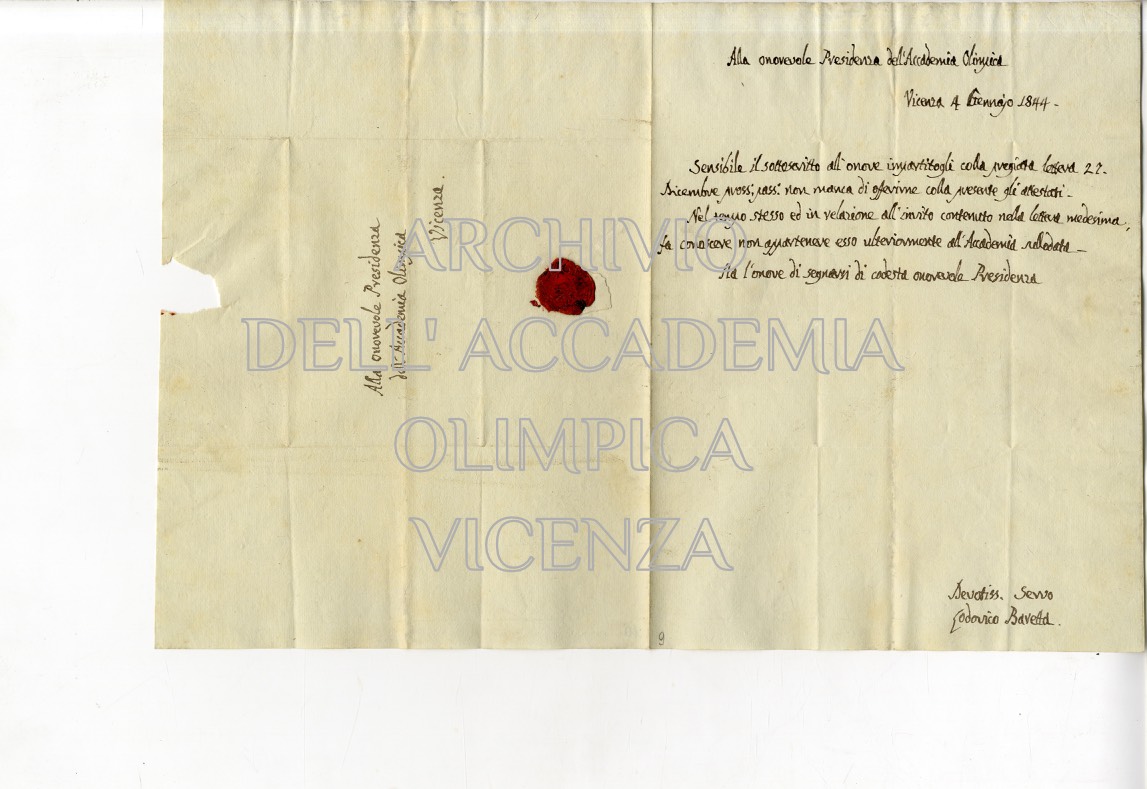 Alla onorevole Presidenza
dell'Accademia Olimpica
Vicenza.
Alla onorevole Presidenza dell'Accademia Olimpica
Vicenza 4 Gennajo 1844 -
Sensibile il sottoscritto all'onore impartitogli colla pregiata lettera 27.
Dicembre pross: pass: non manca di offerirne colla presente gli attestati -
Nel tempo stesso ed in relazione all'invito contenuto nella lettera medesima,
fa conoscere non appartenere esso ulteriormente all'Accademia sullodata -
Ha l'onore di segnarsi di codesta onorevole Presidenza
Devotiss. Servo
Lodovico Baretta.
9
ARCHIVIO
DELL' ACCADEMIA
OLIMPICA
VICENZA